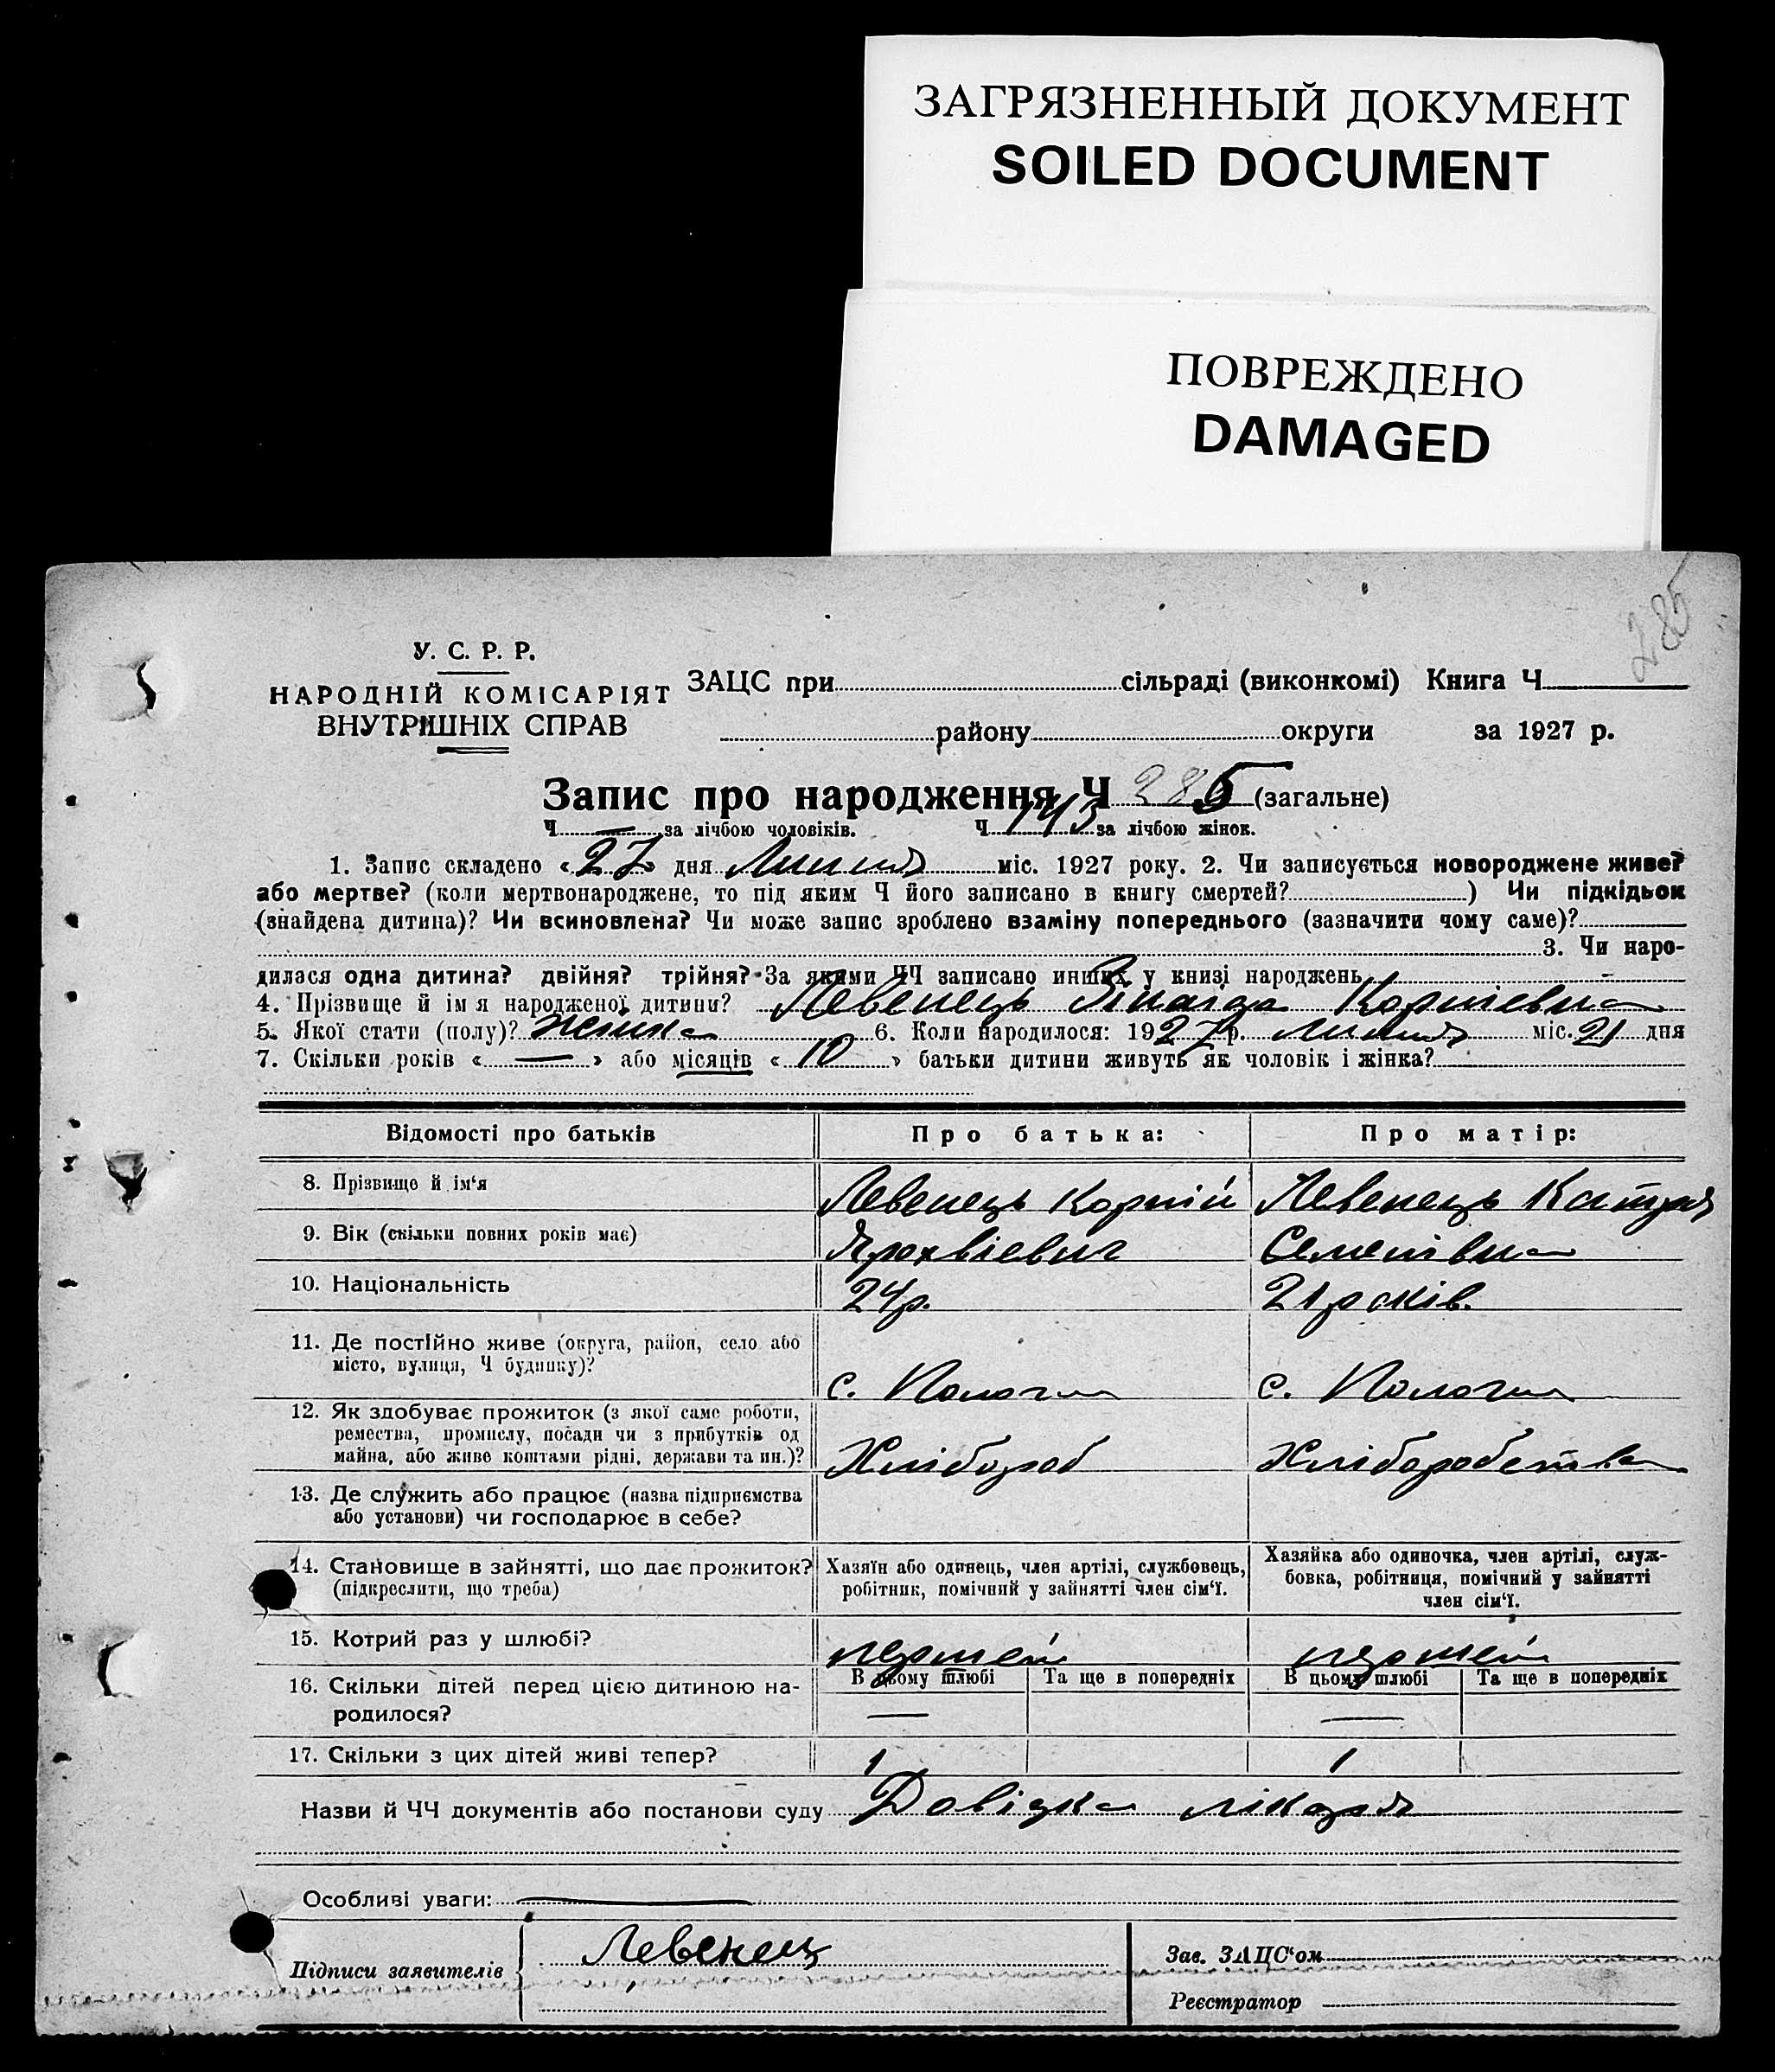 ЗАГРЯЗНЕННЫЙ ДОКУМЕНТ
SOILED DOCUMENT
ПОВРЕЖДЕНО
DAMAGED
285
У. С. Р. Р.
НАРОДНІЙ КОМІСАРІЯТ
ВНУТРІШНІХ СПРАВ
ЗАЦС при сільраді (виконкомі) Книга Ч
району округи за 1927 р.
Запис про народження Ч 285 (загальне)
Ч — за лічбою чоловіків. Ч 143 за лічбою жінок.
1. Запис складено «27» дня Липня міс. 1927 року. 2. Чи записується новороджене живе?
або мертве? (коли мертвонароджене, то під яким Ч його записано в книгу смертей? ) Чи підкідьок
(знайдена дитина)? Чи всиновлена? Чи може запис зроблено взаміну попереднього (зазначити чому саме)?
3. Чи наро-
дилася одна дитина? двійня? трійня? За якими ЧЧ записано инших у книзі народжень
4. Прізвище й імя народженої дитини? Левенець Зінаїда Корніевна
5. Якої стати (полу)? жіноча 6. Коли народилося: 1927 р. липня міс. 21 дня
7. Скільки років « — » або місяців « 10 » батьки дитини живуть як чоловік і жінка?
Відомості про батьків
Про батька:
Про матір:
8. Прізвище й ім'я
Левенець Корній
Левенець Катря
9. Вік (скільки повних років має)
Семенівна
10. Національність
24 р.
21 років.
11. Де постійно живе (округа, район, село або
місто, вулиця, Ч будинку)?
с. Пологи
с. Пологи
12. Як здобуває прожиток (з якої саме роботи,
ремества, промислу, посади чи з прибутків од
майна, або живе коштами рідні, держави та ин.)?
Хлібороб
Хліборобства
13. Де служить або працює (назва підприємства
або установи) чи господарює в себе?
14. Становище в зайнятті, що дає прожиток?
(підкреслити, що треба)
Хазяїн або одинець, член артілі, службовець,
робітник, помічний у зайнятті член сім'ї.
Хазяйка або одиночка, член артілі, служ-
бовка, робітниця, помічний у зайнятті
член сім'ї.
15. Котрий раз у шлюбі?
першей
першей
16. Скільки дітей перед цією дитиною на-
родилося?
В цьому шлюбі Та ще в попередніх
В цьому шлюбі Та ще в попередніх
— —
17. Скільки з цих дітей живі тепер?
1 1
Назви й ЧЧ документів або постанови суду Довідка лікаря
Особливі уваги: —
Підписи заявителів
Левенец
Зав. ЗАЦС'ом
Реєстратор